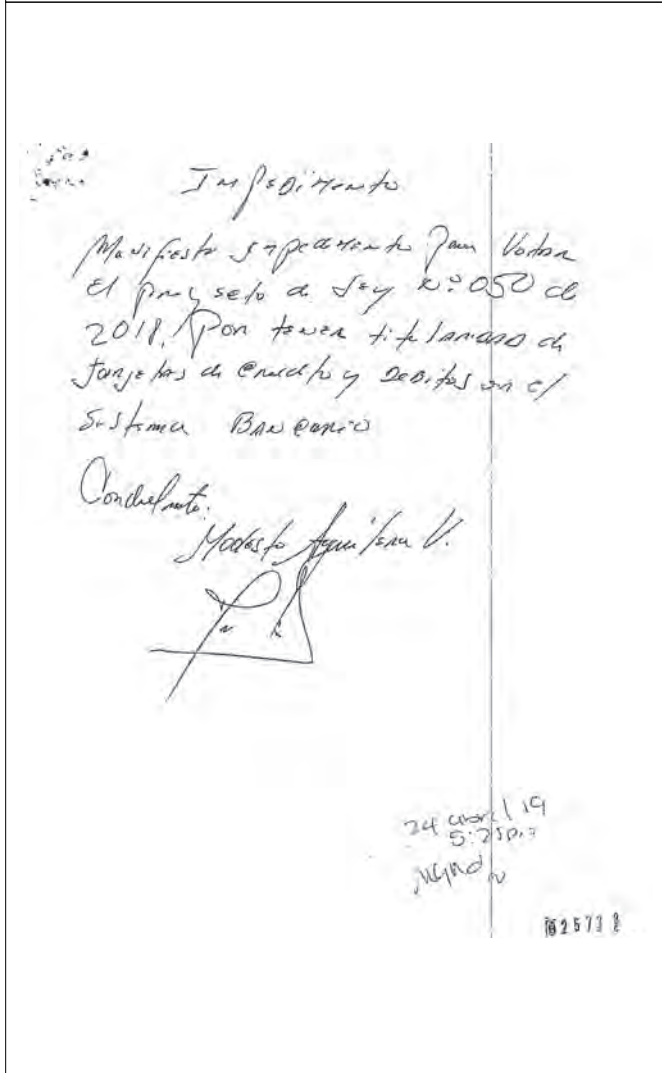 Impedimento
Manifiesto impedimento para Votar
El proyecto de Ley Nº 050 de
2018. Por tener titularidad de
Tarjetas de Credito y Debitos en el
Sistema Bancario
Modesto Aguilera V.
24 abril 19
5:25p.m